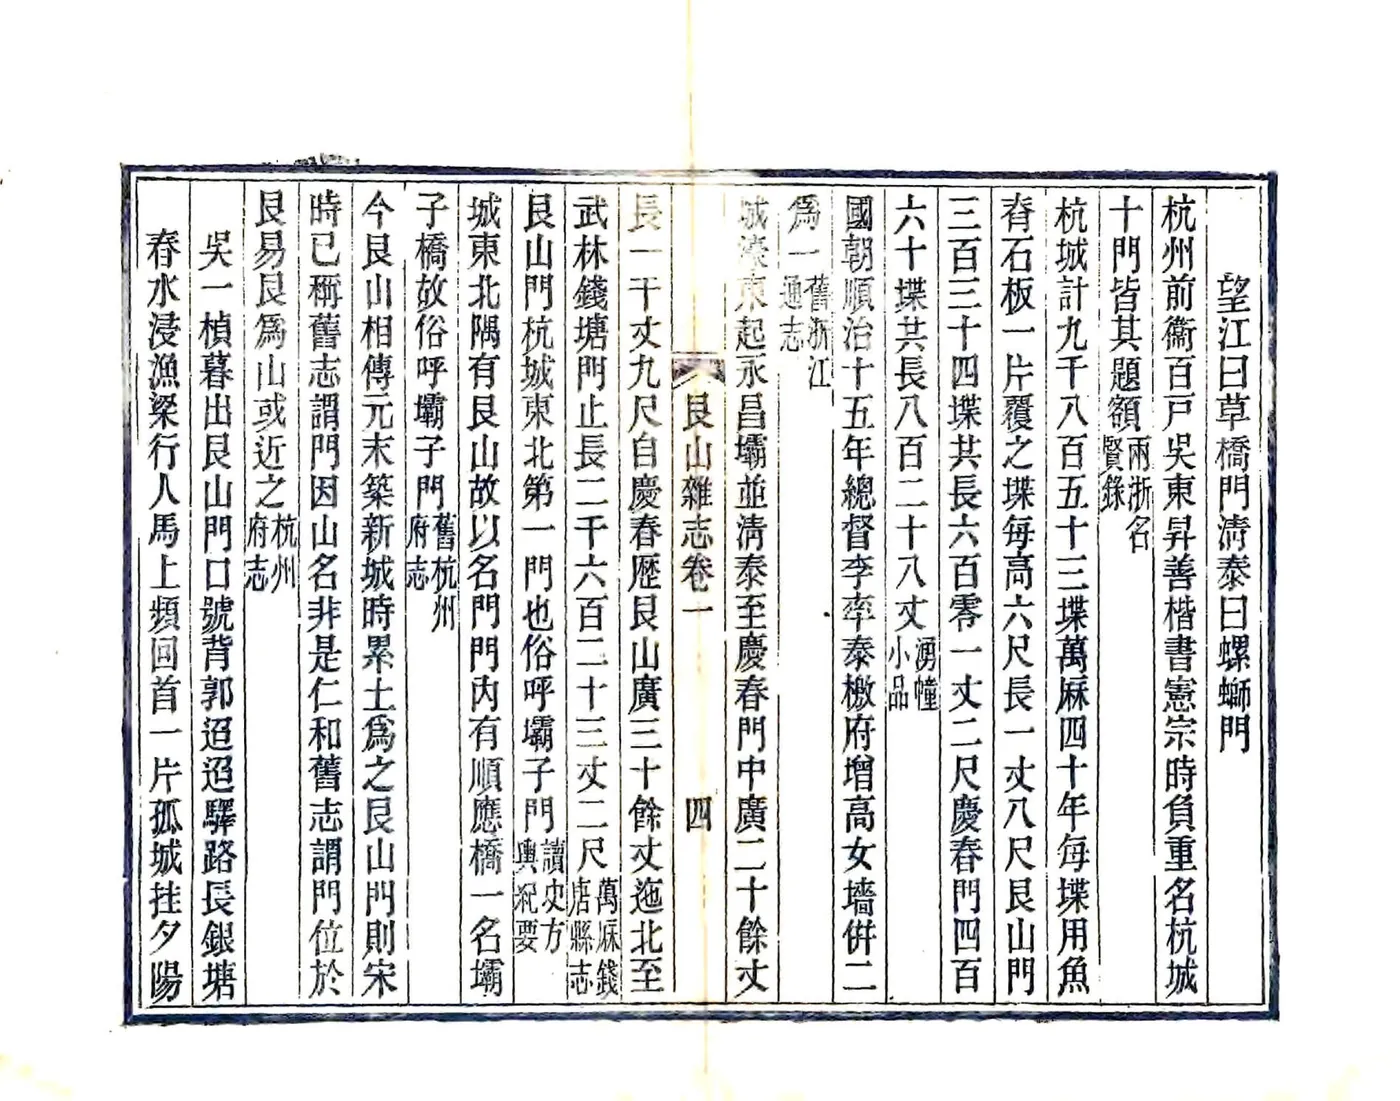 望江曰草橋門淸泰曰螺螄門
杭州前衞百戸吳東昇善楷書憲宗時負重名杭城
十門皆其題額兩浙名賢錄
杭城計九千八百五十三堞萬厤四十年每堞用魚
脊石板一片覆之堞每高六尺長一丈八尺艮山門
三百三十四堞共長六百零一丈二尺慶春門四百
六十堞共長八百二十八丈湧幢小品
國朝順治十五年總督李率泰檄府增高女墻倂二
爲一舊浙江通志
城濠東起永昌壩並淸泰至慶春門中廣二十餘丈
艮山雜志卷一
四
長一千丈九尺自慶春歷艮山廣三十餘丈迤北至
武林錢塘門止長二千六百二十三丈二尺萬厤錢唐縣志
艮山門杭城東北第一門也俗呼壩子門讀史方輿紀要
城東北隅有艮山故以名門門內有順應橋一名壩
子橋故俗呼壩子門舊杭州府志
今艮山相傳元末築新城時累土爲之艮山門則宋
時已稱舊志謂門因山名非是仁和舊志謂門位於
艮易艮爲山或近之杭州府志
吳一楨暮出艮山門口號背郭迢迢驛路長銀塘
春水浸漁梁行人馬上頻回首一片孤城挂夕陽